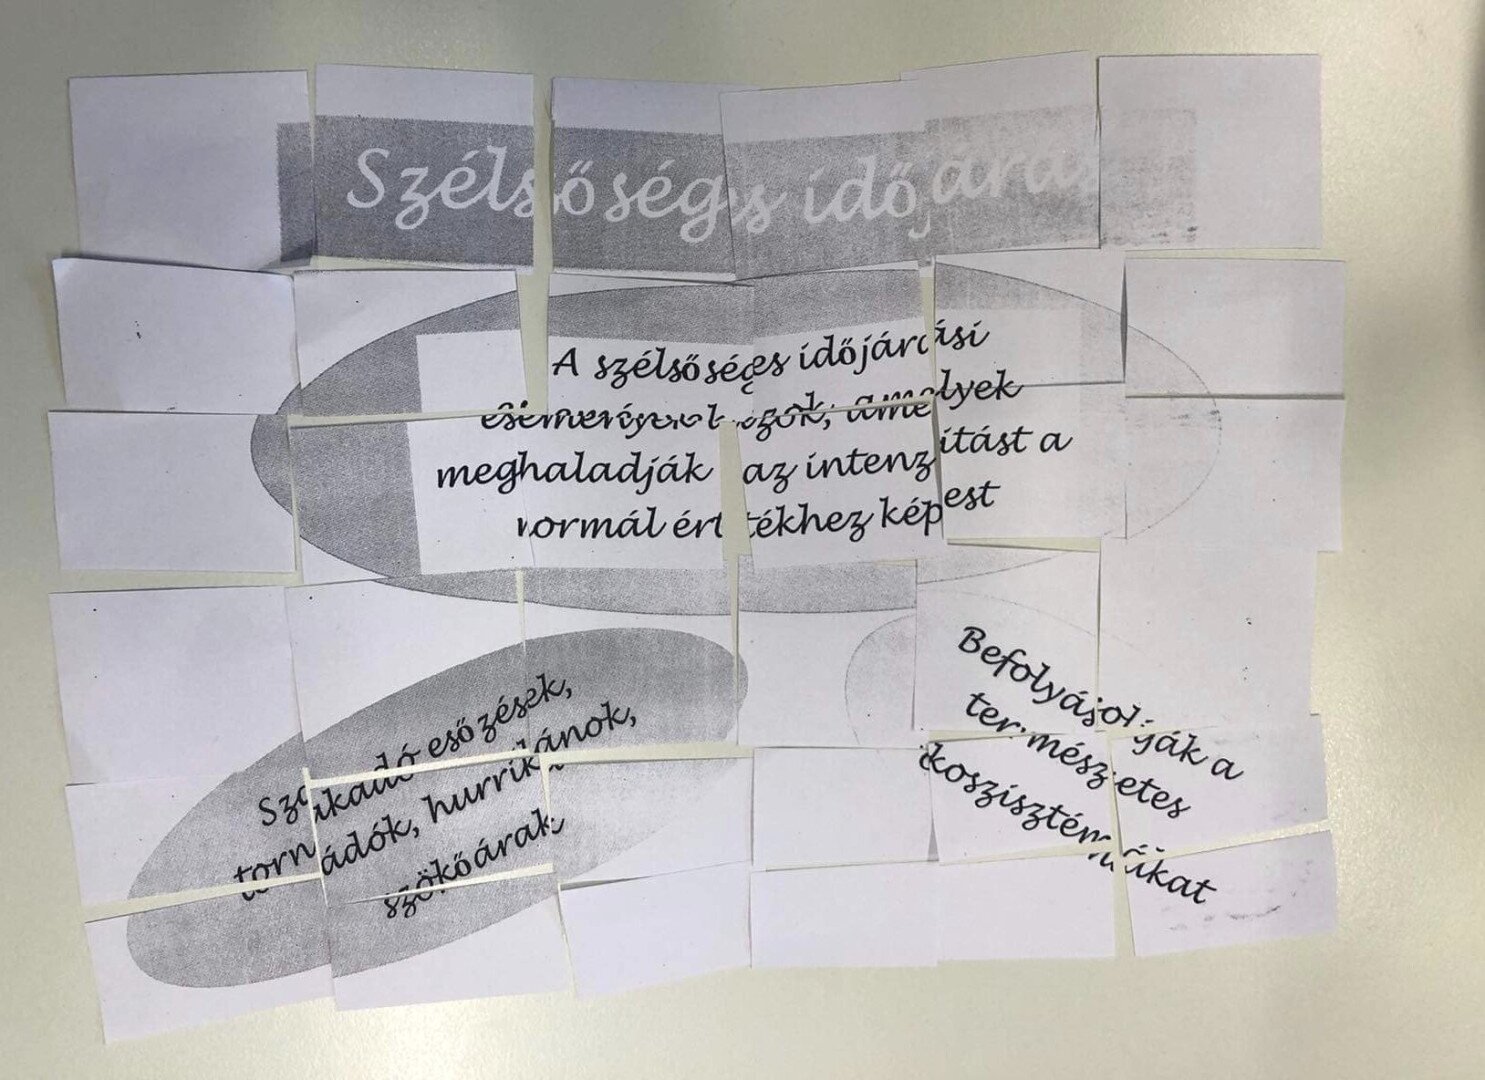 Szélsőségs időjárás
A szélsőséges időjárási
események azok, amelyek
meghaladják az intenzitást a
normál értékhez képest
Szakadó esőzések,
tornádók, hurrikánok,
szökőárak
Befolyásolják a
természetes
ökoszisztémáikat